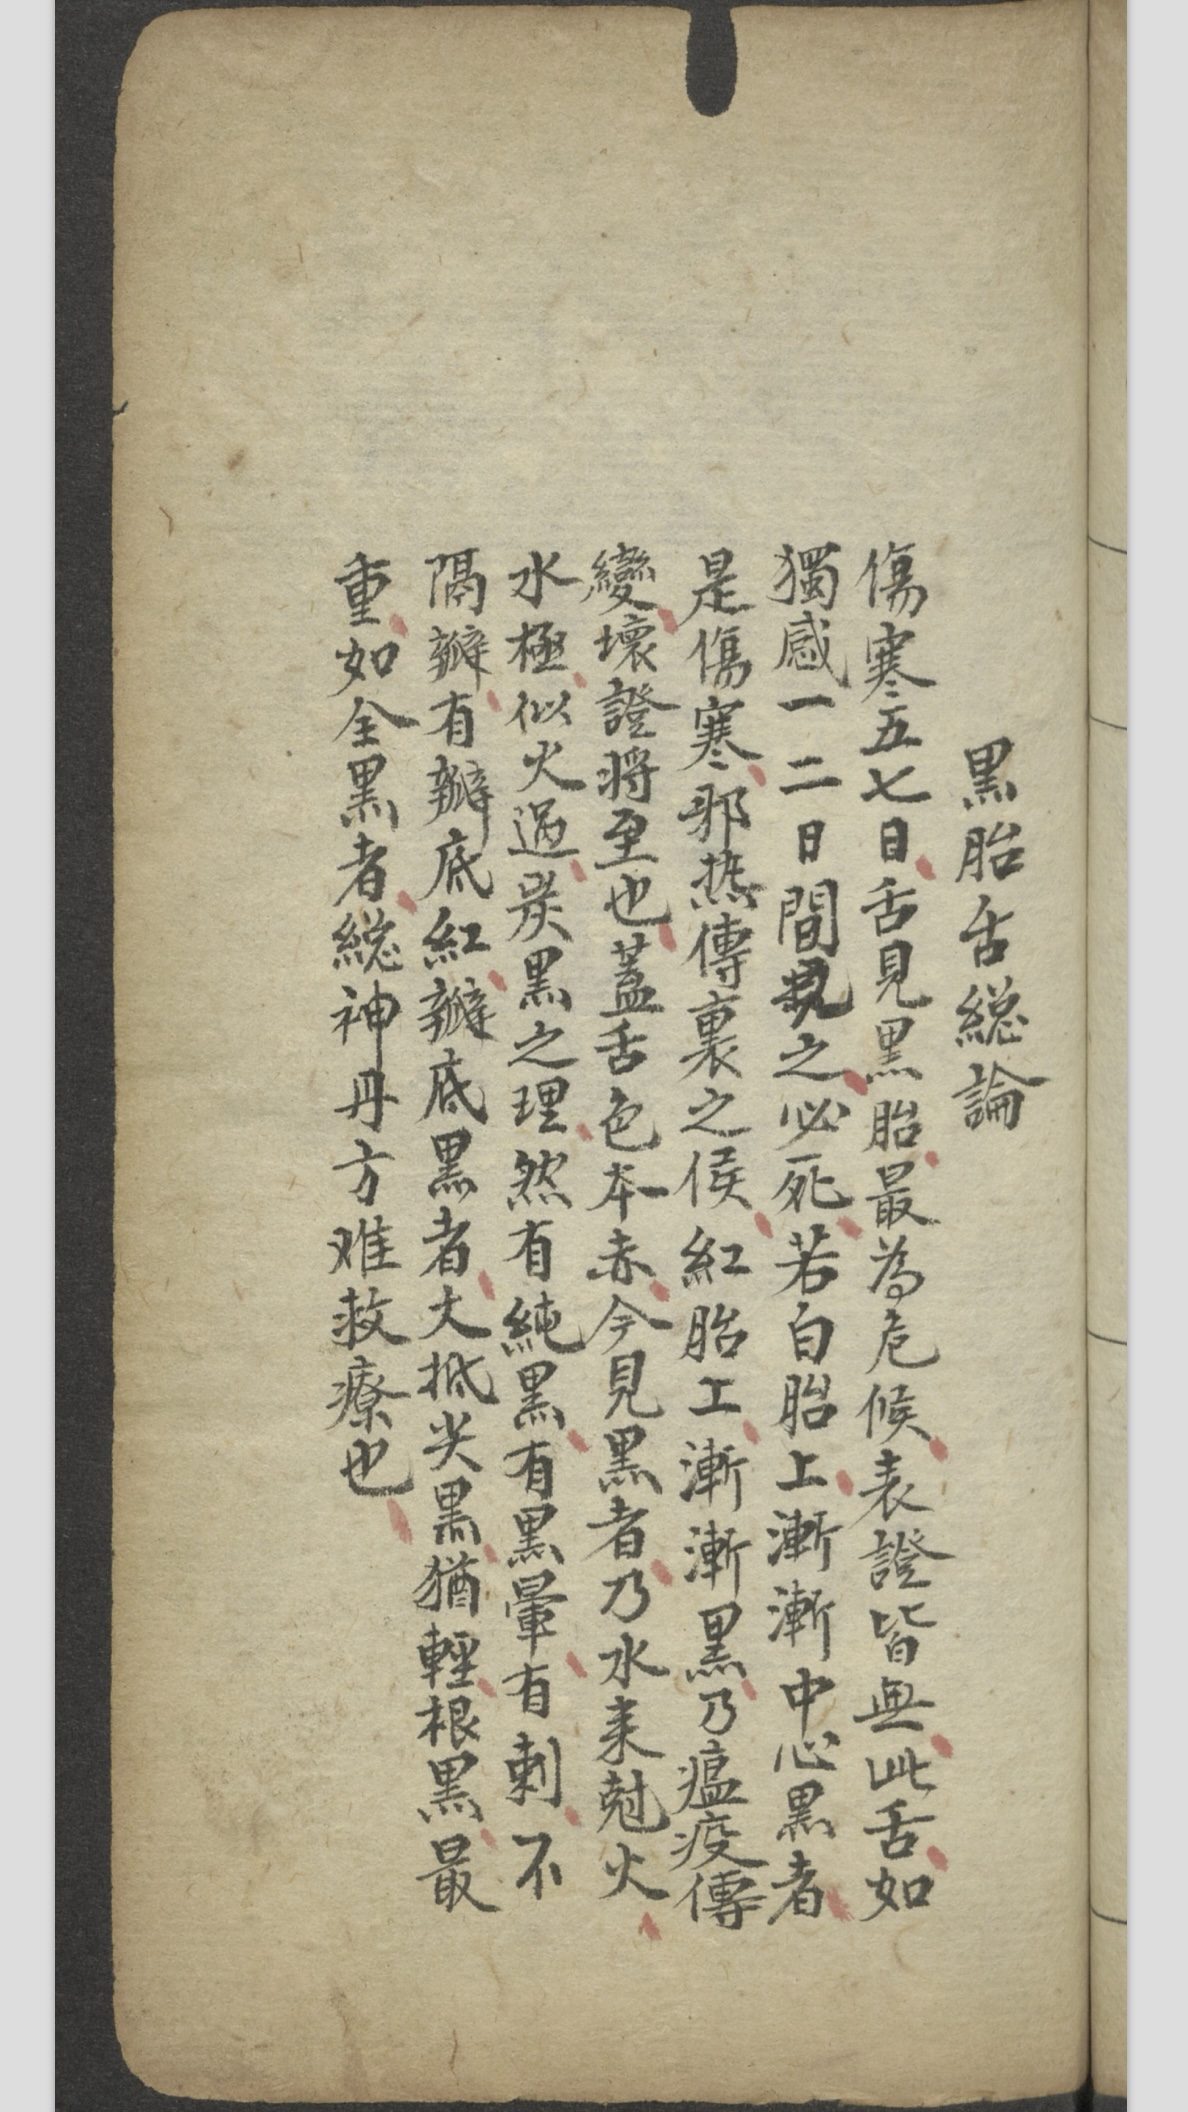 黑胎舌緫論
傷寒五七日舌見黑胎最為危候表證皆無此舌如
獨感一二日間見之必死若白胎上漸漸中心黑者
是傷寒邪热傳裏之候紅胎工漸漸黑乃瘟疫傳
變壞證將至也蓋舌色本赤今見黑者乃水来尅火
水極似火過炭黑之理然有純黑有黑暈有刺不
隔瓣有瓣底紅瓣底黑者大抵尖黑猶輕根黑最
重如全黑者緫神丹方难救療也